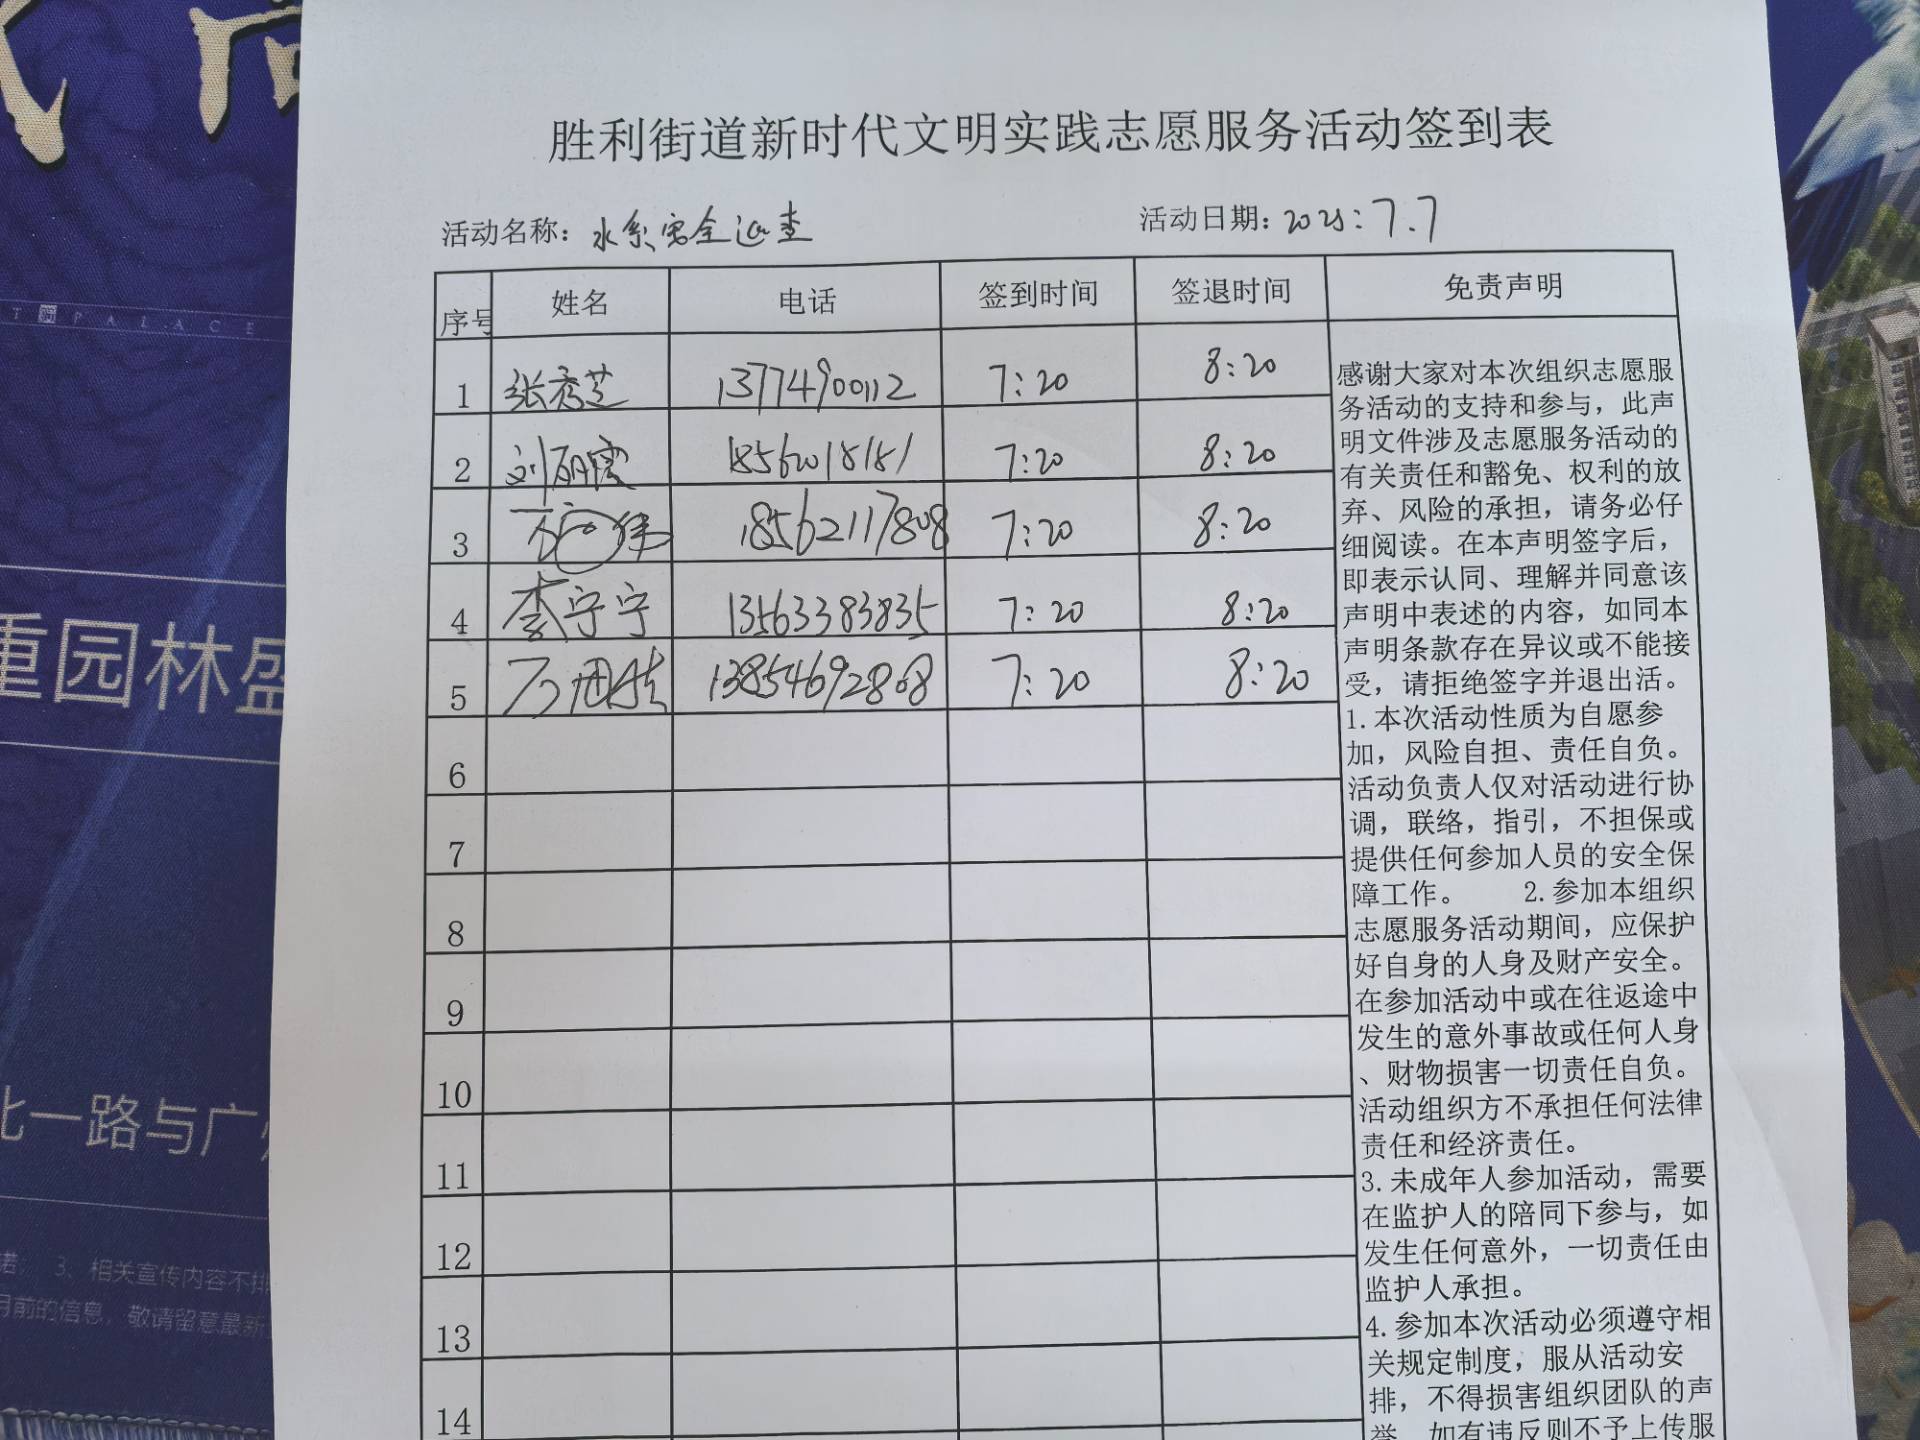 T PALACE
重园林盛
北一路与广
诺; 3、相关宣传内容不排
月前的信息, 敬请留意最新
胜利街道新时代文明实践志愿服务活动签到表
活动名称: 水系安全巡查 活动日期: 2025:7.7
序号 姓名 电话 签到时间 签退时间 免责声明
1 张秀芝 13774900112 7:20 8:20
2 刘丽霞 18562018181 7:20 8:20
3 18562117808 7:20 8:20
4 李宁宁 13563383835 7:20 8:20
5 13854692808 7:20 8:20
6
7
8
9
10
11
12
13
14
感谢大家对本次组织志愿服
务活动的支持和参与，此声
明文件涉及志愿服务活动的
有关责任和豁免、权利的放
弃、风险的承担，请务必仔
细阅读。在本声明签字后，
即表示认同、理解并同意该
声明中表述的内容，如同本
声明条款存在异议或不能接
受，请拒绝签字并退出活。
1.本次活动性质为自愿参
加，风险自担、责任自负。
活动负责人仅对活动进行协
调，联络，指引，不担保或
提供任何参加人员的安全保
障工作。 2.参加本组织
志愿服务活动期间，应保护
好自身的人身及财产安全。
在参加活动中或在往返途中
发生的意外事故或任何人身
、财物损害一切责任自负。
活动组织方不承担任何法律
责任和经济责任。
3.未成年人参加活动，需要
在监护人的陪同下参与，如
发生任何意外，一切责任由
监护人承担。
4.参加本次活动必须遵守相
关规定制度，服从活动安
排，不得损害组织团队的声
誉，如有违反则不予上传服